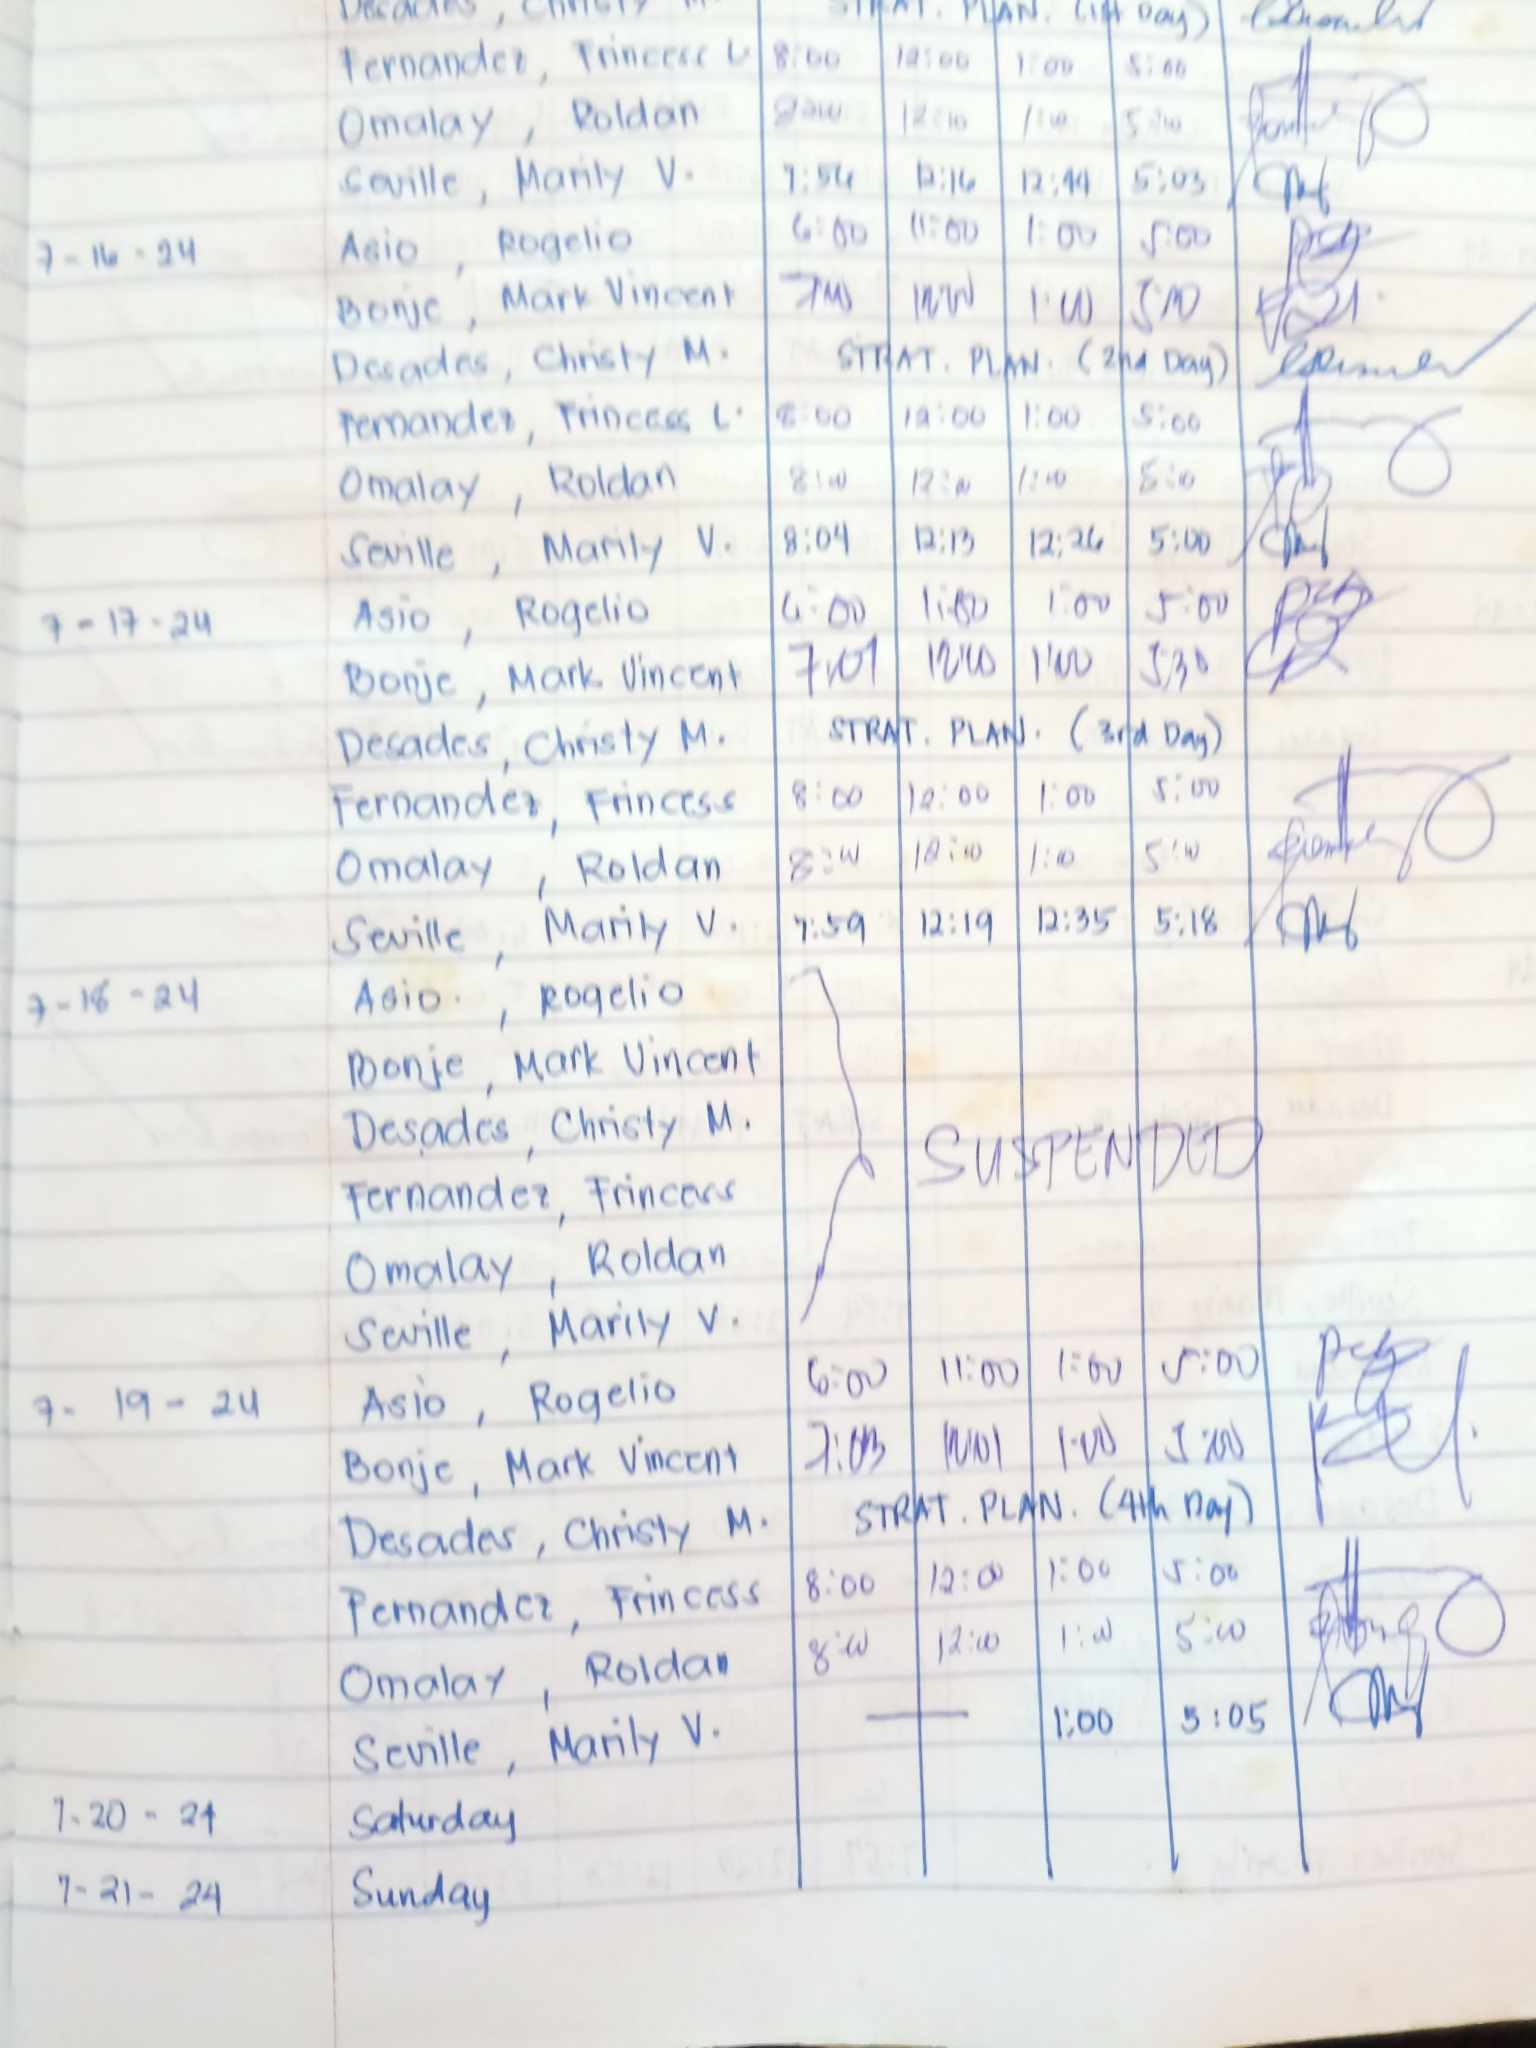 Desades, Christy M. STRAT. PLAN. (1st Day)
Fernandez, Frincess L 8:00 12:00 1:00 5:00
Omalay, Roldan 8:00 12:00 1:00 5:00
Seville, Marily V. 7:54 12:16 12:44 5:03
7-16-24 Asio, Rogelio 6:00 11:00 1:00 5:00
Bonje, Mark Vincent 1:00
Desades, Christy M. STRAT. PLAN. (2nd Day)
Fernandez, Frincess L. 8:00 12:00 1:00 5:00
Omalay, Roldan 8:00 12:00 1:00 5:00
Seville, Marily V. 8:04 12:13 12:26 5:00
7-17-24 Asio, Rogelio 6:00 11:00 1:00 5:00
Bonje, Mark Vincent 7:01 12:00 1:00 5:30
Desades, Christy M. STRAT. PLAN. (3rd Day)
Fernandez, Frincess 8:00 12:00 1:00 5:00
Omalay, Roldan 8:00 12:00 1:00 5:00
Seville, Marily V. 7:59 12:19 12:35 5:18
7-18-24 Asio, Rogelio
Bonje, Mark Vincent
Desades, Christy M.
SUSPENDED
Fernandez, Frincess
Omalay, Roldan
Seville, Marily V.
7-19-24 Asio, Rogelio 6:00 11:00 1:00 5:00
Bonje, Mark Vincent 7:03 12:01 1:00 5:00
Desades, Christy M. STRAT. PLAN. (4th Day)
Fernandez, Frincess 8:00 12:00 1:00 5:00
Omalay, Roldan 8:00 12:00 1:00 5:00
Seville, Marily V. — 1:00 5:05
7-20-24 Saturday
7-21-24 Sunday